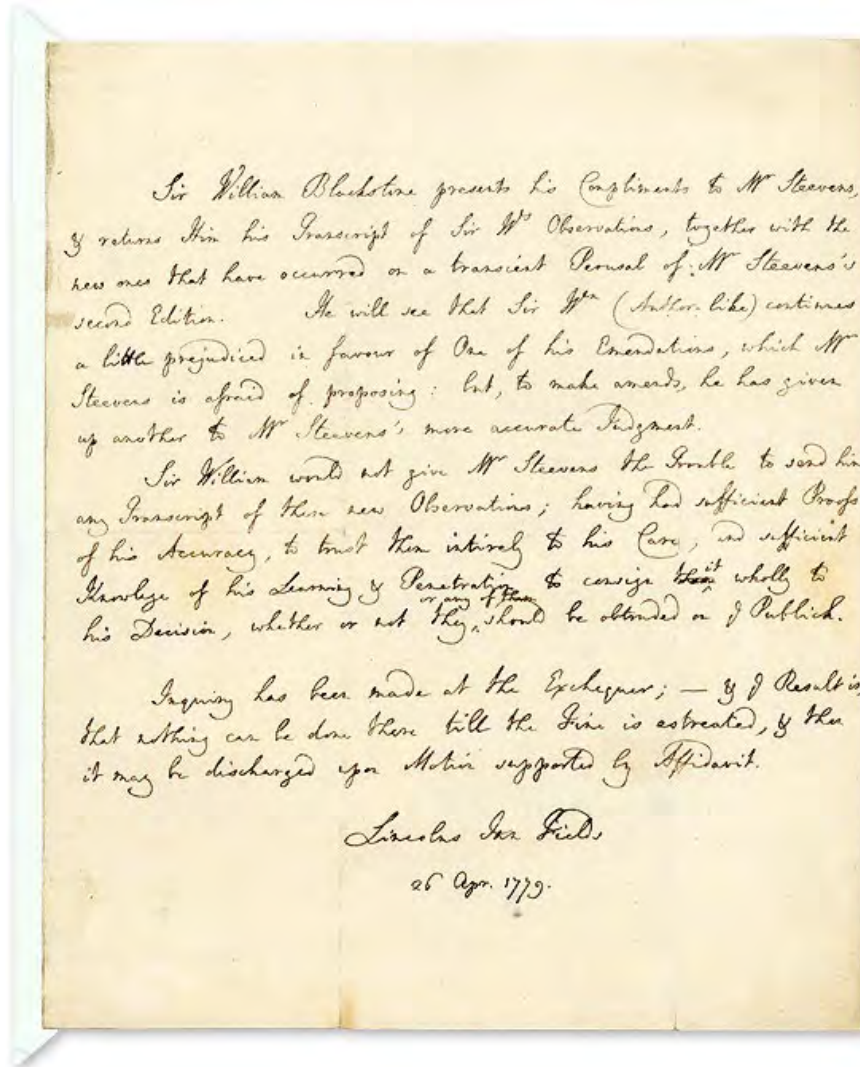 Sir William Blackstone presents his Compliments to Mr Steevens,
& returns Him his Transcript of Sir Wms Observations, together with the
new ones that have occurred on a transient Perusal of Mr Steevens's
second Edition. He will see that Sir Wm (Author-like) continues
a little prejudiced in favour of One of his Emendations, which Mr
Steevens is afraid of proposing: but, to make amends, he has given
up another to Mr Steevens's more accurate Judgment.
Sir William would not give Mr Steevens the Trouble to send him
any Transcript of these new Observations; having had sufficient Proofs
of his Accuracy, to trust them intirely to his Care, and sufficient
Knowlege of his Learning & Penetration to consign them it wholly to
his Decision, whether or not they or any of them should be obtruded on ye Publick.
Inquiry has been made at the Exchequer; — & ye Result is
that nothing can be done there till the Fine is estreated, & then
it may be discharged upon Motion supported by Affidavit.
Lincolns Inn Fields
26 Apr. 1779.